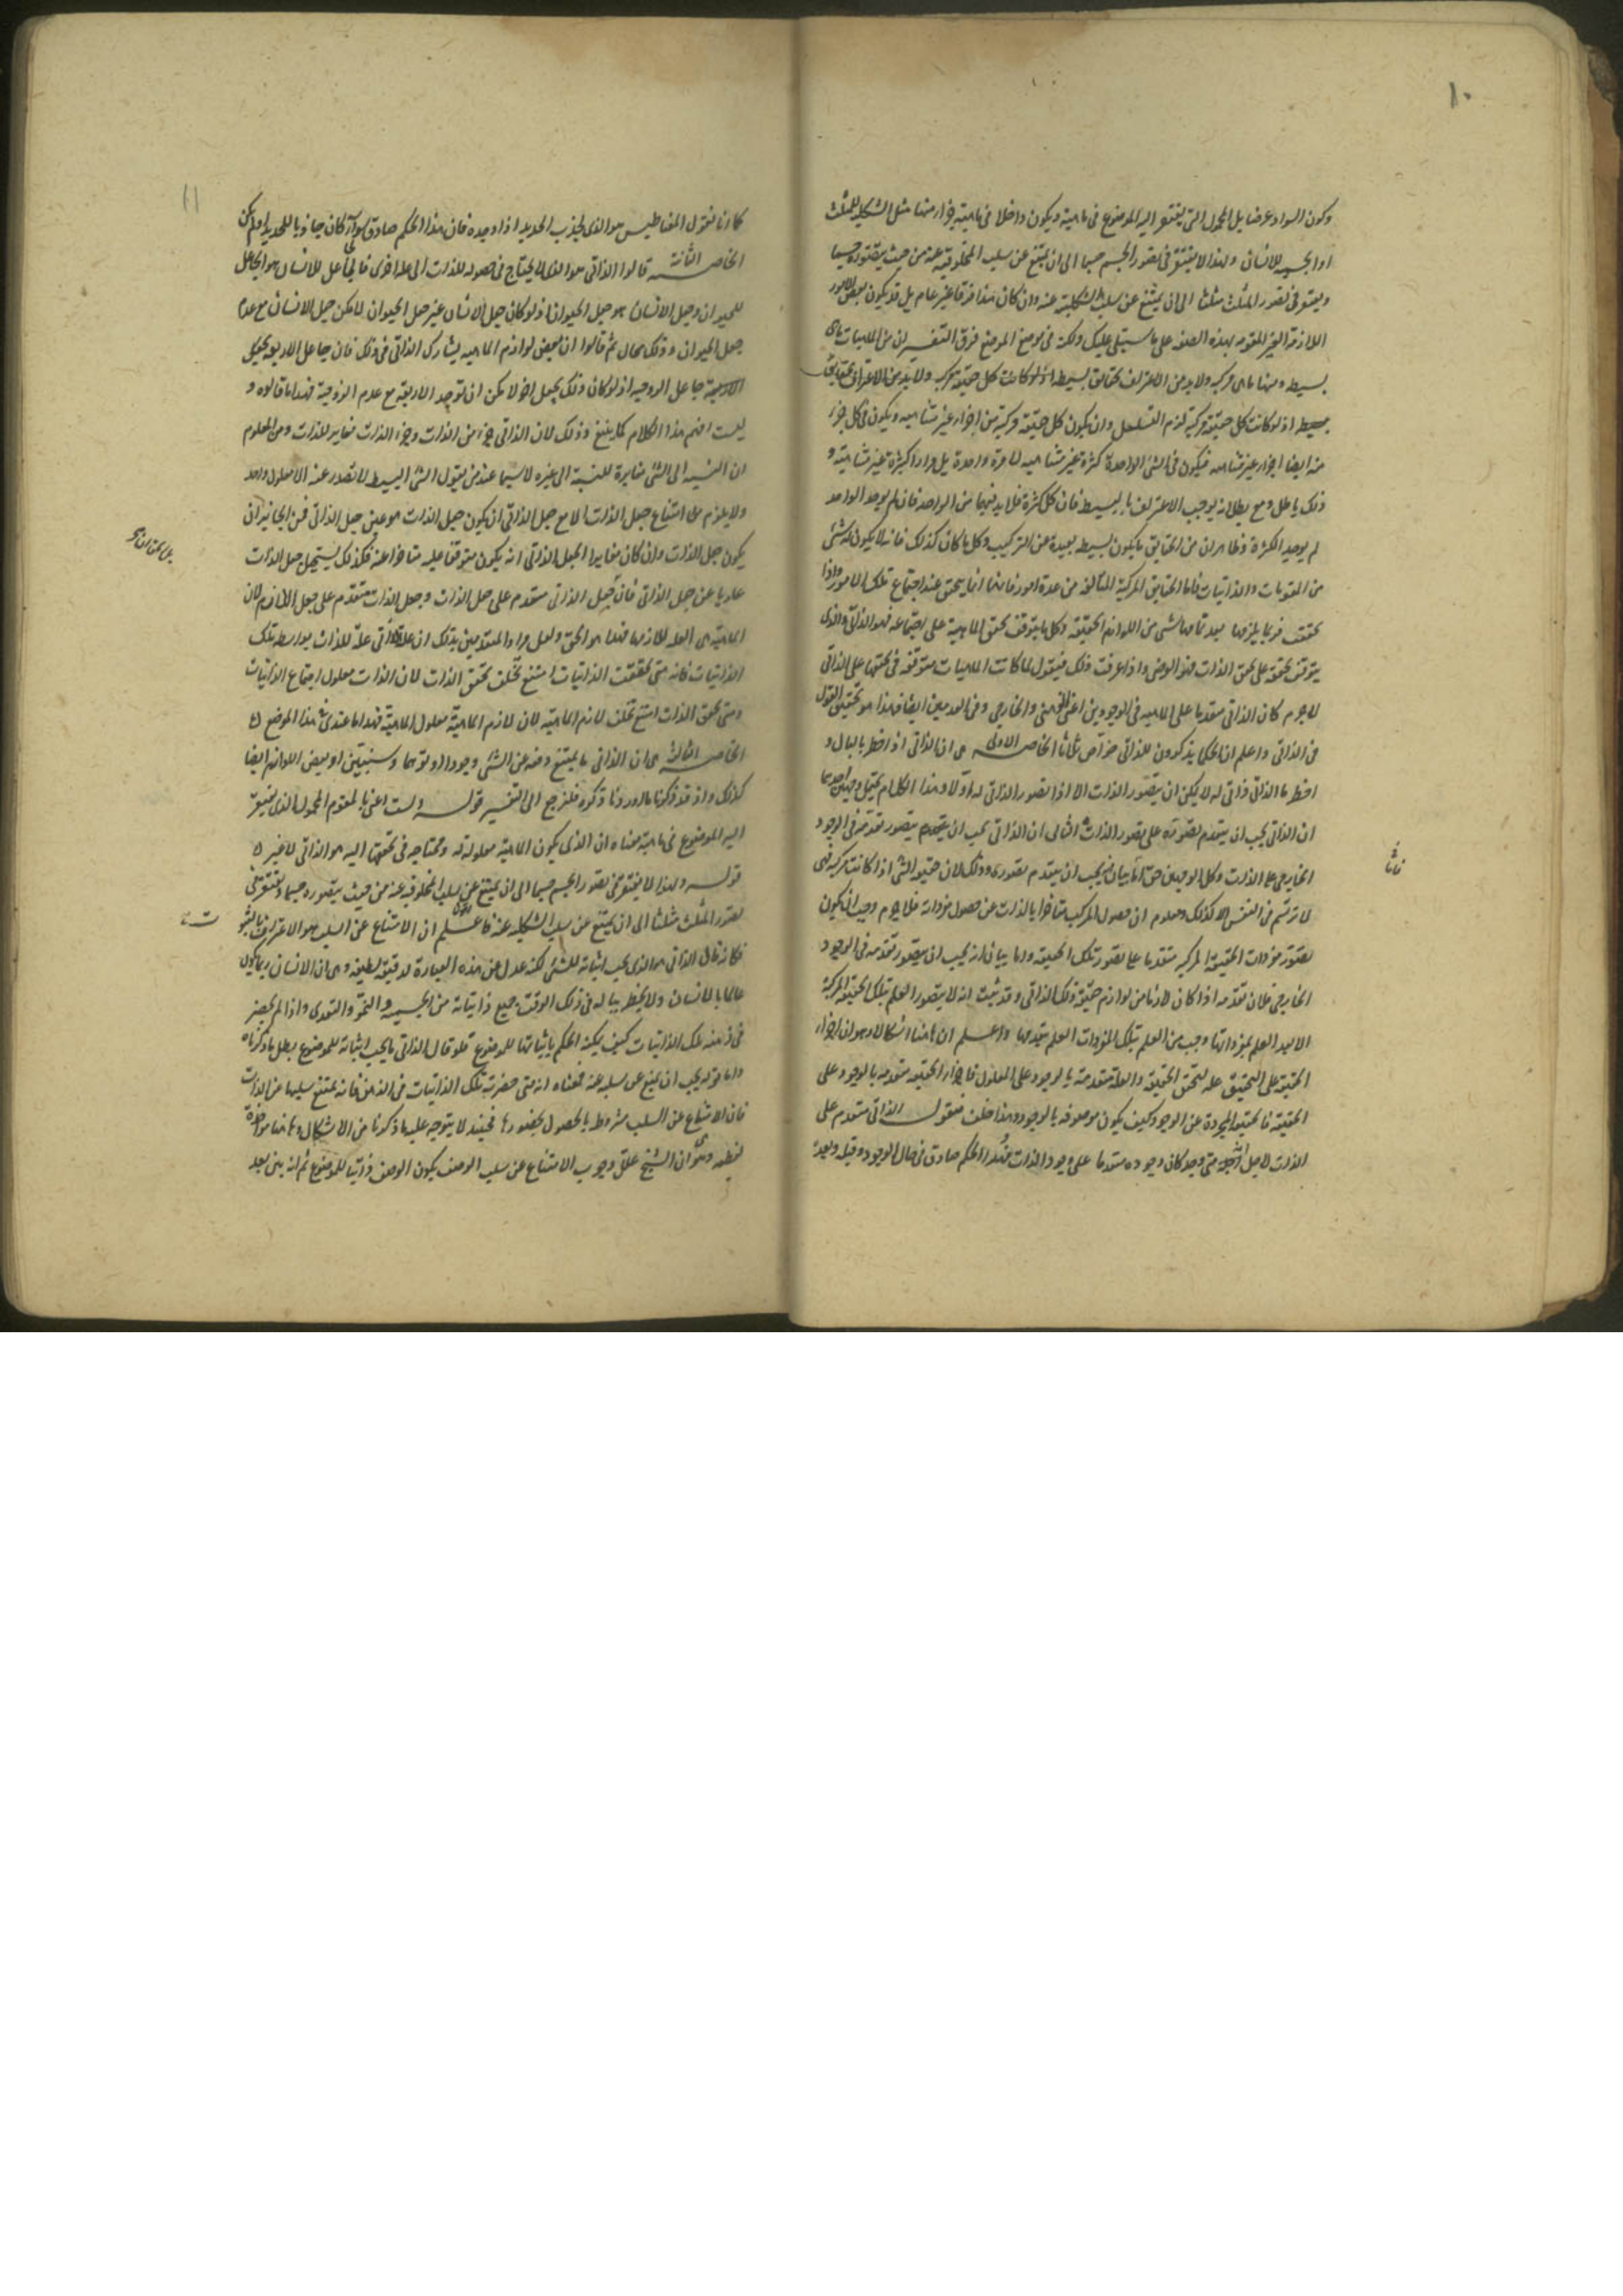 ١٠
وكون السواد عرضا بل المحمول الذى يفتقر اليه الموضوع فى ماهيته ويكون داخلا فى ماهيته جزء منها مثل الشكلية للمثلث
او الجسمية للانسان ولهذا لا يفتقر فى تصور الجسم جسما الى ان يمتنع عن سلب المخلوقية عنه من حيث يتصوره جسما
ويفتقر فى تصور المثلث مثلثا الى ان يمتنع عن سلب الشكلية عنه وان كان هذا فرقا غير عام بل قد يكون بعض الامور
اللازمة الغير المقومة بهذه الصفة على ما سيتلى عليك ولكنه فى موضع الموضع فرق التفسير ان من الماهيات ما هى
بسيطة ومنها ما هى مركبة ولا بد من الاعتراف بحقائق بسيطة اذ لو كانت كل حقيقة مركبة ولا بد من الاعتراف بحقايق
بسيطة اذ لو كانت كل حقيقة مركبة لزم التسلسل وان يكون كل حقيقة مركبة من اجزاء غير متناهية ويكون فى كل جزء
منه ايضا اجزاء غير متناهيه فيكون فى الشئ الواحد كثرة غير متناهيه لا مرة واحدة بل مرارا كثيرة غير متناهية و
ذلك باطل ومع بطلانه يوجب الاعتراف بالبسيط فان كل كثرة فلا بد فيها من الواحد فان لم يوجد الواحد
لم يوجد الكثرة وظاهر ان من الحقايق ما يكون بسيطه بعيدة عن التركيب وكل ما كان كذلك فانه لا يكون له شئ
من المقومات والذاتيات فاما الحقايق المركبة المتالفة من عدة امور فانها انما يتحقق عند اجتماع تلك الامور واذا
تحققت فربما يلزمها بعد تمامها شئ من اللوازم الحقيقه وكل ما يتوقف تحقق الماهية على اجتماعه فهو الذاتى والذى
يتوقف تحققه على تحقق الذات فهو العرضى واذا عرفت ذلك فنقول لما كانت الماهيات متوقفة فى تحققها على الذاتى
لا جرم كان الذاتى متقدما على الماهيه فى الوجودين اعنى الذهنى والخارجى وفى العدمين ايضا فهذا هو تحقيق القول
فى الذاتى واعلم ان الحكما يذكرون للذاتى خواص ثلاثا الخاصه الاولى هى ان الذاتى اذا خطر بالبال و
اخطر ما الذاتى ذاتى له لا يمكن ان يتصور الذات الا اذا تصور الذاتى له اولا وهذا الكلام يحتمل وجهين احدهما
ان الذاتى يجب ان يتقدم تصوره على تصور الذات الثانى ان الذاتى يجب ان يتصور تقدمه فى الوجود
الخارجى على الذات وكلا الوجهين حق اما بيان انه يجب ان يتقدم تصوره وذلك لان حقيقة الشئ اذا كانت مركبة فهى
لا ترتسم فى النفس الا كذلك ومعلوم ان حصول المركب متاخر بالذات عن حصول مفرداته فلا جرم وجب ان يكون
تصور مفردات الحقيقة المركبه متقدما على تصور تلك الحقيقه واما بيان انه يجب ان يتصور تقدمه فى الوجود
الخارجى فلان تقدمه اذا كان لازما من لوازم حقيقة ذلك الذاتى وقد ثبت انه لا يتصور العلم بتلك الحقيقة المركبة
الا بعد العلم بمفرداتها وجب من العلم بتلك المفردات العلم بتقدمها واعلم ان هاهنا اشكالا وهو ان اجزاء
الحقيقة على التحقيق علة لتحقق الحقيقة والعلة متقدمة بالوجود على المعلول فاجزاء الحقيقه متقدمه بالوجود على
الحقيقة فالحقيقه المجردة عن الوجود كيف يكون موصوفه بالوجود وهذا خلف فنقول الذاتى متقدم على
الذات لاجل انه متى وجد كان وجوده متقدما على وجود الذات فهذا الحكم صادق فى حال الوجود وقبله وبعده
١١
كما انا نقول المغناطيس هو الذى يجذب الحديد اذا وجده فان هذا الحكم صادق سواء كان جاذبا للحديد او لم يكن
الخاصه الثانية قالوا الذاتى هو الذى لا يحتاج فى حصوله للذات الى علة اخرى فالجاعل للانسان هو الجاعل
للحيوان وجعل الانسان هو جعل الحيوان اذ لو كان جعل الانسان غير جعل الحيوان لامكن جعل الانسان مع عدم
جعل الحيوان وذلك محال ثم قالوا ان بعض لوازم الماهيه يشارك الذاتى فى ذلك فان جاعل الاربعه
جاعل الزوجيه اذ لو كان ذلك بجعل اخر لامكن ان توجد الاربعة مع عدم الزوجية فهذا ما قالوه و
لست افهم هذا الكلام كما ينبغى وذلك لان الذاتى جزء من الذات وجزء الذات مغاير للذات ومن المعلوم
ان النسبه الى الشئ مغايرة للنسبة الى غيره لا سيما عند من يقول الشئ البسيط لا تصدر عنه الا معلول واحد
ولا يلزم من امتناع جعل الذات الا مع جعل الذاتى ان يكون جعل الذات هو عين جعل الذاتى فمن الجايز ان
يكون جعل الذات وان كان مغايرا لجعل الذاتى انه يكون متوقفا عليه متاخرا عنه فلذلك يستحيل جعل الذات
عاريا عن جعل الذاتى فان جعل الذاتى متقدم على جعل الذات وجعل الذات متقدم على جعل اللازم لان
الماهية هى العلة للازمها فهذا هو الحق ولعل مراد المتقدمين بذلك ان علة الذاتى علة للذات بواسطه تلك
الذاتيات فانه متى تحققت الذاتيات امتنع تخلف تحقق الذات لان الذات معلول اجتماع الذاتيات
ومتى تحقق الذات امتنع تخلف لازم الماهية لان لازم الماهية معلول الماهية فهذا ما عندى فى هذا الموضع
الخاصه الثالثه هى ان الذاتى ما يمتنع رفعه عن الشئ وجودا وتوهما وسنبين ان بعض اللوازم ايضا
كذلك واذ قد ذكرنا ما اردنا ذكره فلنرجع الى التفسير قوله ولست اعنى بالمقوم المحمول الذى يفتقر
اليه الموضوع فى ماهيته معناه ان الذى يكون الماهية معلولة له ومحتاجه فى تحققها اليه هو الذاتى لا غير
قوله ولهذا لا يفتقر فى تصور الجسم جسما الى ان يمتنع عن سلب المخلوقيه عنه من حيث يتصوره جسما ويفتقر فى
تصور المثلث مثلثا الى ان يمتنع عن سلب الشكليه عنه فاعلم ان الامتناع عن السلب هو الاعتراف بالثبوت
فكانه قال الذاتى هو الذى يجب اثباته للشئ لكنه عدل عن هذه العبارة لدقيقة لطيفه وهى ان الانسان ربما يكون
عالما بالانسان ولا يخطر بباله فى ذلك الوقت جميع ذاتياته من الجسميه والنمو والتغذى واذا لم يحضر
فى ذهنه تلك الذاتيات كيف يمكنه الحكم باثباتها للموضوع فلو قال الذاتى ما يجب اثباته للموضوع بطل بما ذكرناه
واما قوله يجب ان يمتنع عن سلبه عنه فمعناه انه متى حضرت تلك الذاتيات فى الذهن فانه يمتنع سلبها عن الذات
فان الامتناع عن السلب مشروط بالحصول بحضورها فحينئذ لا يتوجه عليه ما ذكرنا من الاشكال وهاهنا مواخذة
لفظيه وهى ان الشيخ علق وجوب الامتناع عن سلب الوصف بكون الوصف ذاتيا للموضوع ثم انه بين بعد